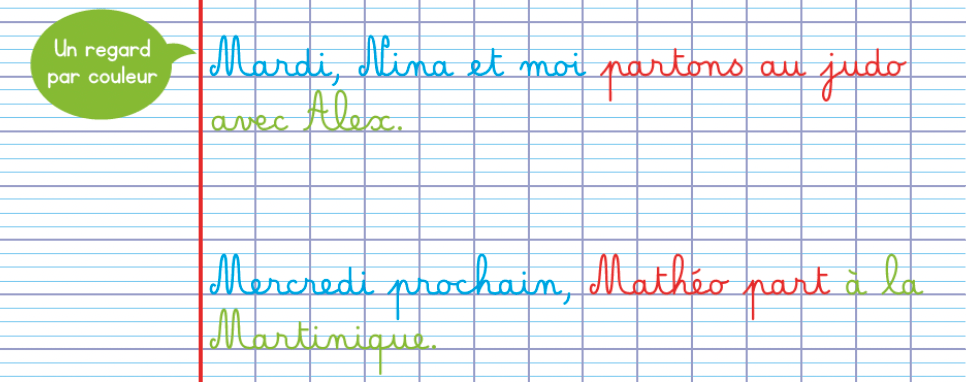 Un regard
par couleur
Mardi, Nina et moi partons au judo
avec Alex.
Mercredi prochain, Mathéo part à la
Martinique.